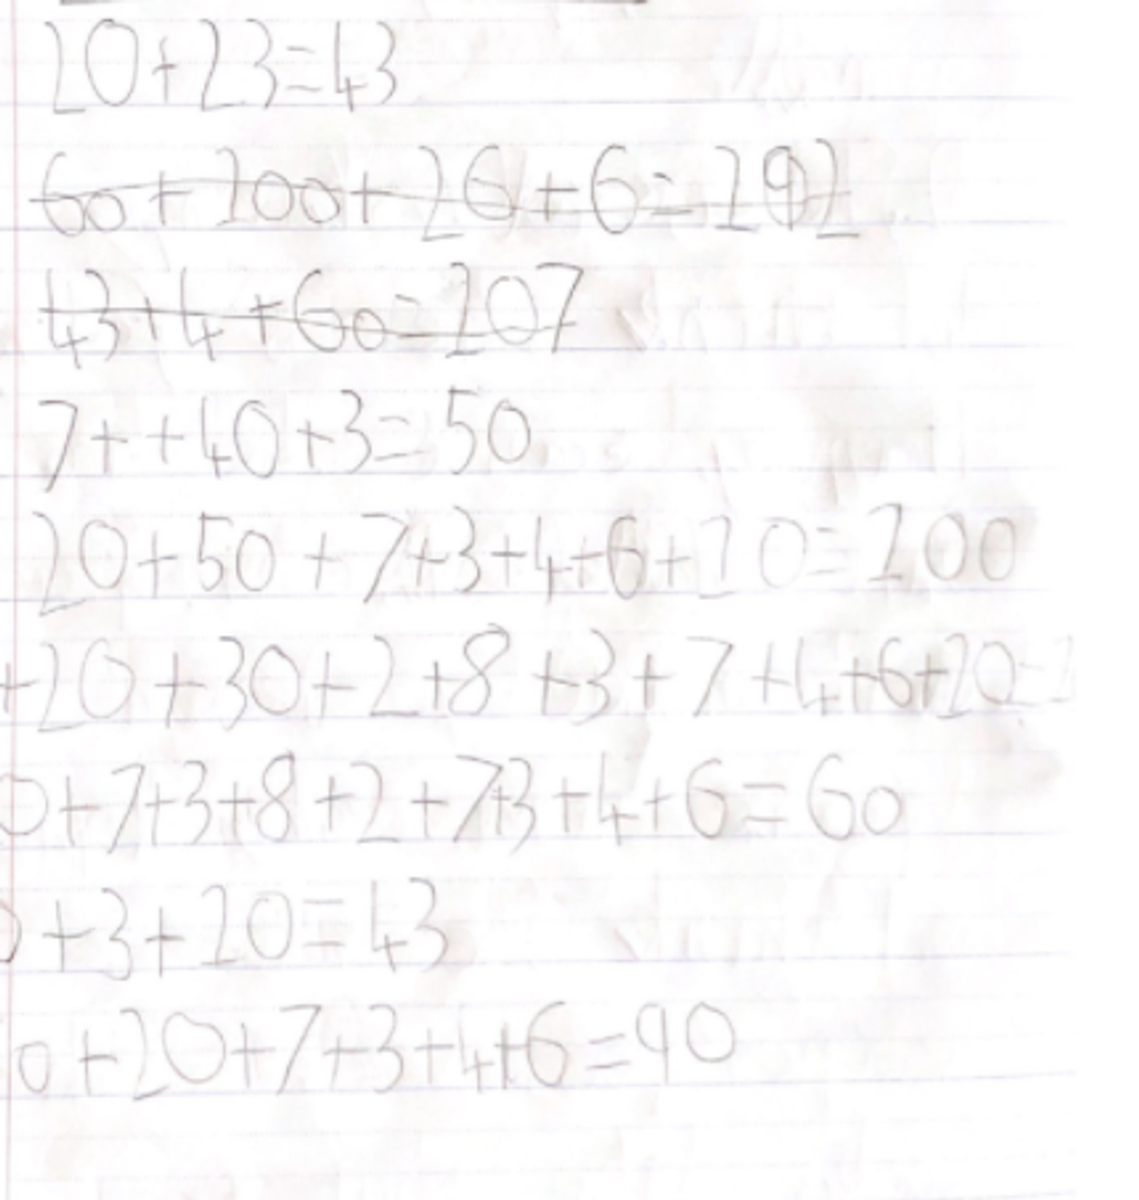 20+23=43
60+100+26+6=192
43+4+60=107
7++40+3=50
20+50+7+3+4+6+10=100
+20+30+2+8+3+7+4+6+20=
0+7+3+8+2+7+3+4+6=60
+3+10=43
0+20+7+3+4+6=90